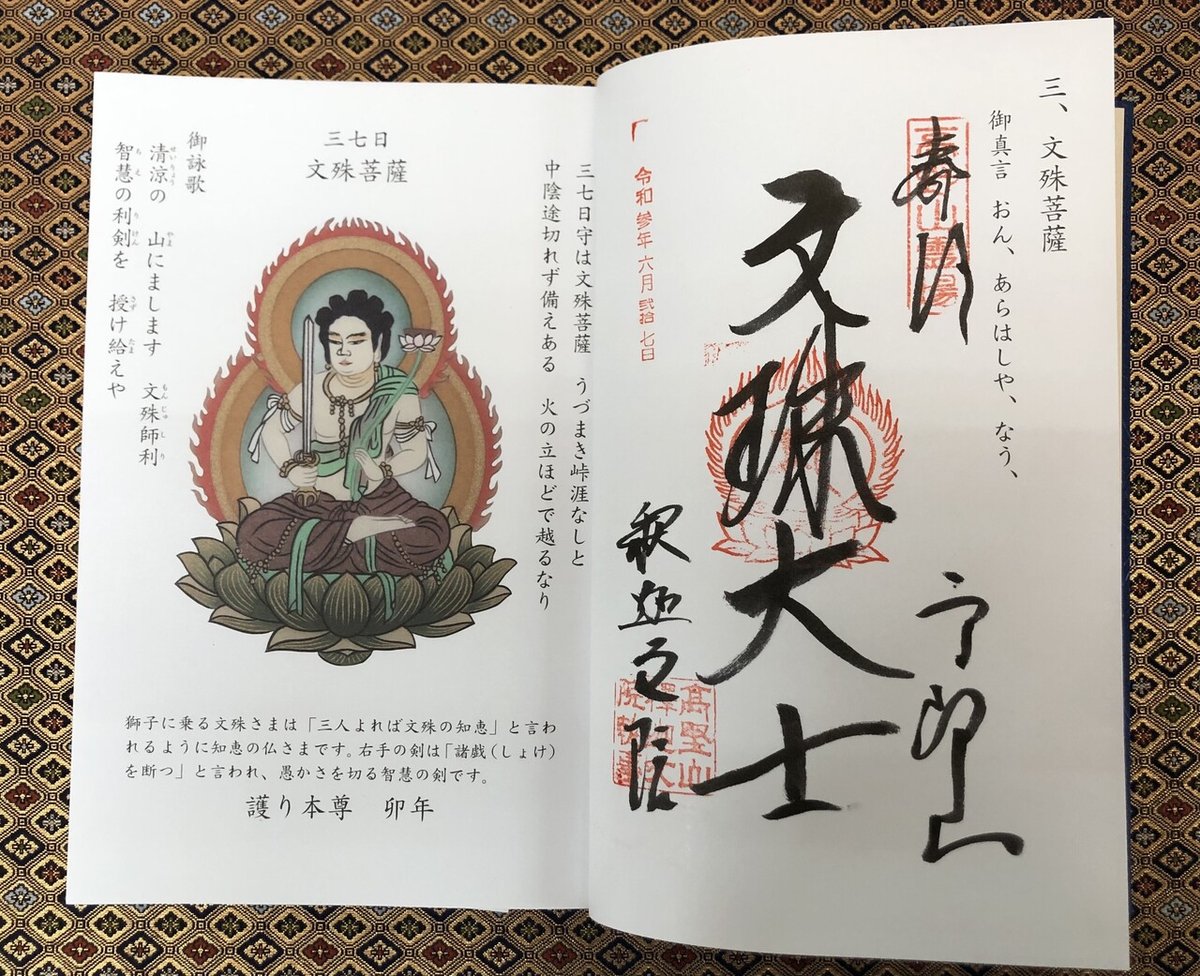 三、文殊菩薩
御真言 おん、あらはしや、なう、
奉拝
高野山
文殊大士
釈迦文院
令和參年六月弐拾七日
三七日守は文殊菩薩 うづまき峠涯なしと
中陰途切れず備えある 火の立ほどで越るなり
三七日
文殊菩薩
御詠歌
清涼の 山にまします 文殊師利
智慧の利剣を 授け給えや
獅子に乗る文殊さまは「三人よれば文殊の知恵」と言わ
れるように知恵の仏さまです。右手の剣は「諸戯(しょけ)
を断つ」と言われ、愚かさを切る智慧の剣です。
護り本尊 卯年